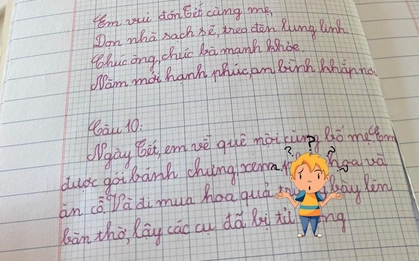 Em vui đón Tết cùng mẹ,
Dọn nhà sạch sẽ, treo đèn lung linh.
Chúc ông, chúc bà mạnh khỏe,
Năm mới hạnh phúc, an bình khắp nơi
Câu 10:
Ngày Tết, em về quê nội cùng bố mẹ. Em
được gói bánh chưng, xem hoa và
ăn cỗ. Và đi mua hoa quả bày lên
bàn thờ, lấy các cụ đã bị